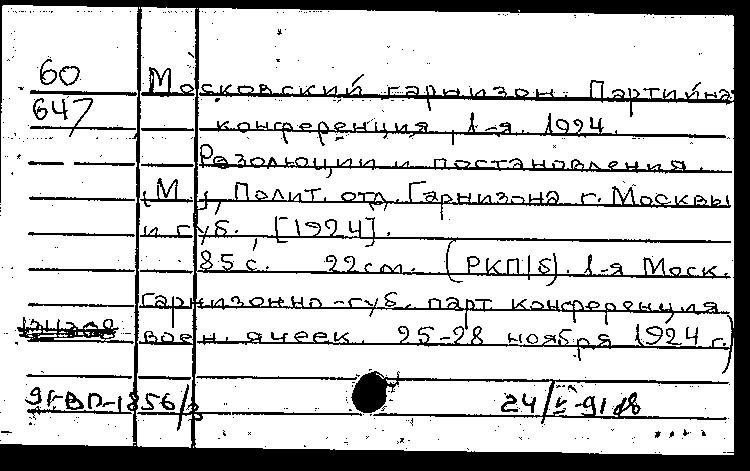 60 Московский гарнизон. Партийная
647 конференция, 1-я. 1924.
Резолюции и постановления.
[М.], Полит. отд. Гарнизона г. Москвы
и губ., [1924].
85 с. 22 см. (РКП/б). 1-я Моск.
гарнизонно-губ. парт. конференция
воен. ячеек. 25-28 ноября 1924 г.)
91-ВП-1856/3 24/V-91